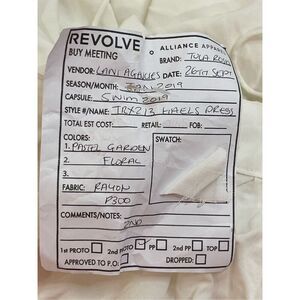 REVOLVE
BUY MEETING
ALLIANCE APPAREL
BRAND: TULA ROSA
VENDOR: LANI AGARIES DATE: 26TH SEPT
SEASON/MONTH: JAN 2019
CAPSULE: SWIM 2019
STYLE #/NAME: TRX213 HAELS DRESS
TOTAL EST COST: RETAIL: FOB:
COLORS:
SWATCH:
1. PASTEL GARDEN
2. FLORAL
3.
FABRIC: RAYON
P300
COMMENTS/NOTES:
1st PROTO 2nd PROTO PP 2nd PP TOP
APPROVED TO P.O. DROPPED: